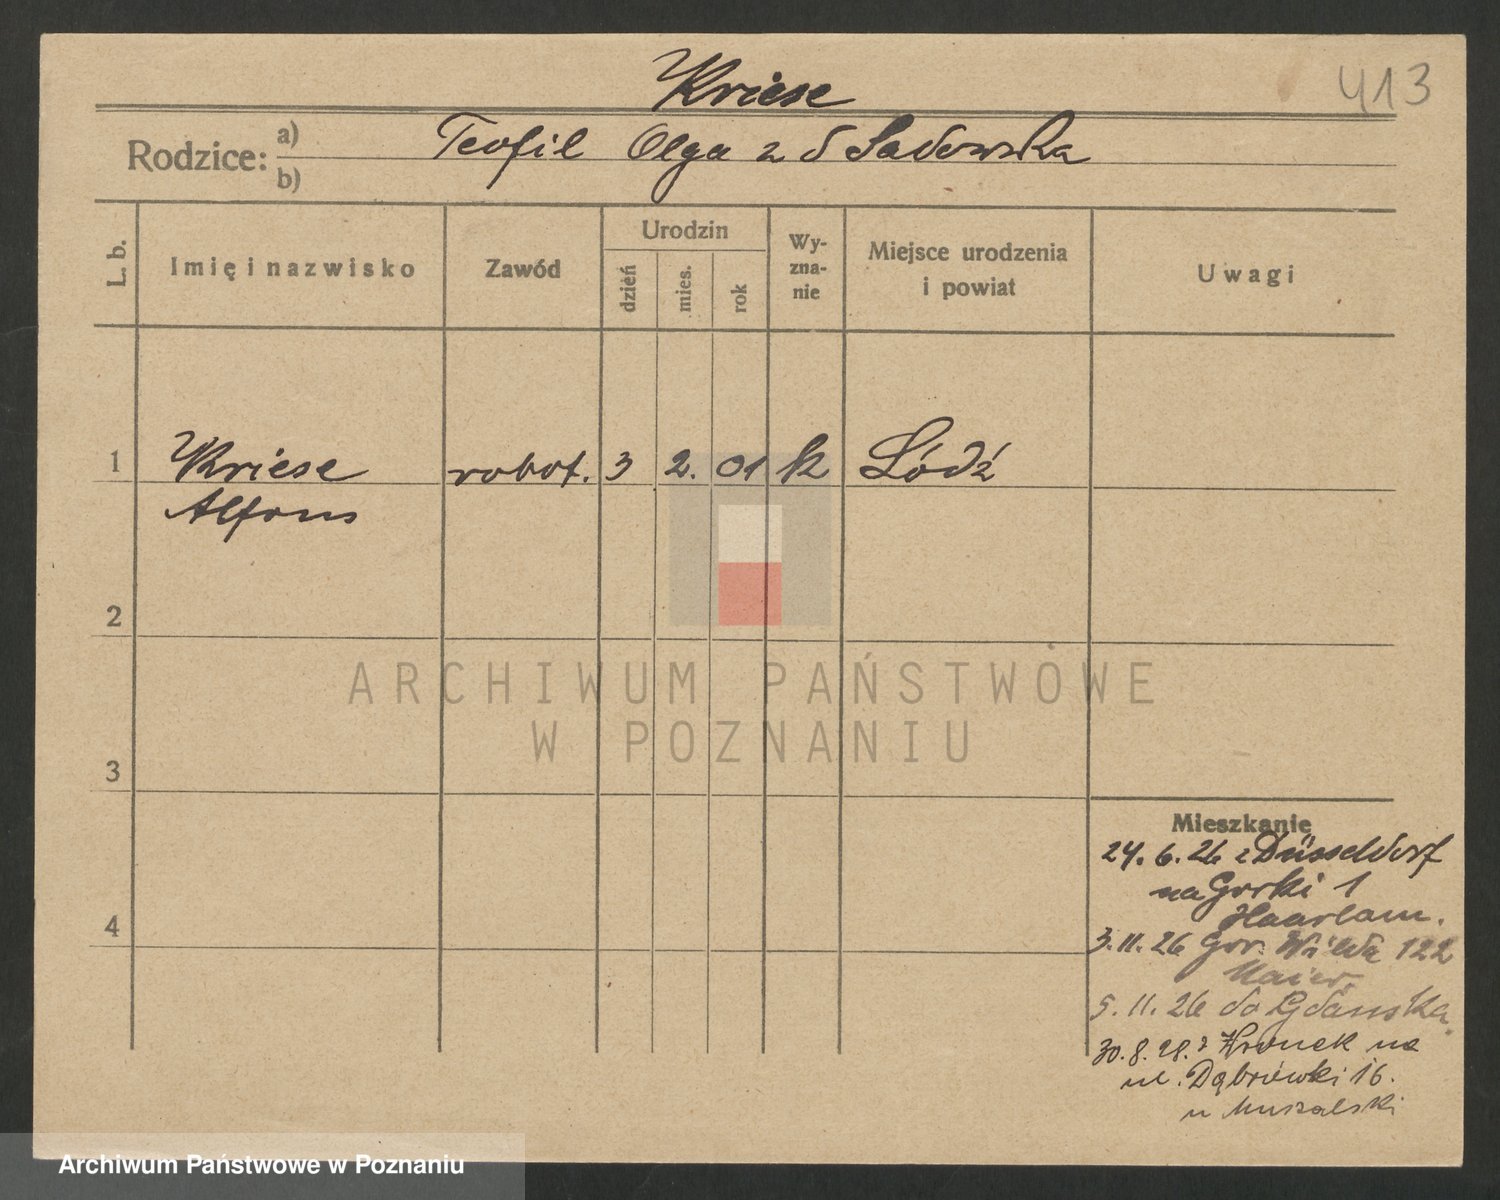 Kriese
413
Rodzice: a) b)
Teofil Olga z d Sadowska
L. b.
Imię i nazwisko
Zawód
Urodzin
dzień
mies.
rok
Wy-
zna-
nie
Miejsce urodzenia
i powiat
Uwagi
1 Kriese robot. 3 2. 01 k Łódź
Alfons
2
3
4
Mieszkanie
24. 6. 26 z Düsseldorf
na Gorki 1
Haarlam.
3. 11. 26 Gor. Wilda 122
Maier.
5. 11. 26 do Gdańska.
30. 8. 28. z Kronek na
ul. Dąbrówki 16.
u Muszalski
ARCHIWUM PAŃSTWOWE
W POZNANIU
Archiwum Państwowe w Poznaniu